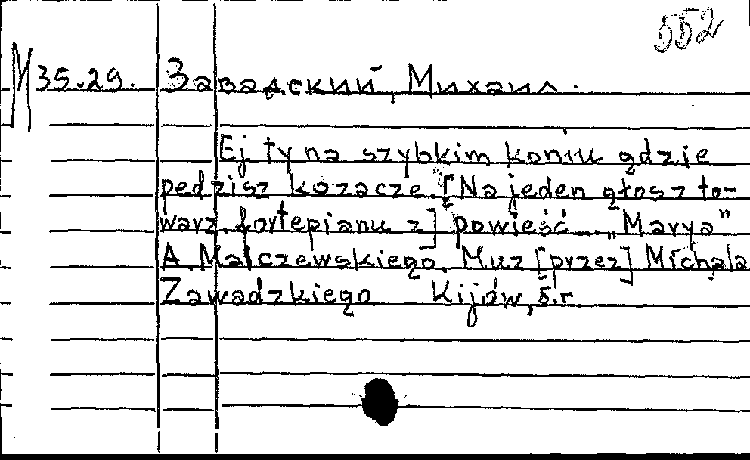 552
М 35.29. Завадский, Михаил.
Ej ty na szybkim koniu gdzie
pędzisz kozacze. [Na jeden głos z to-
warz. fortepianu z] powieść „Marya"
A. Malczewskiego. Muz [przez] Michała
Zawadzkiego Kijów, s.r.